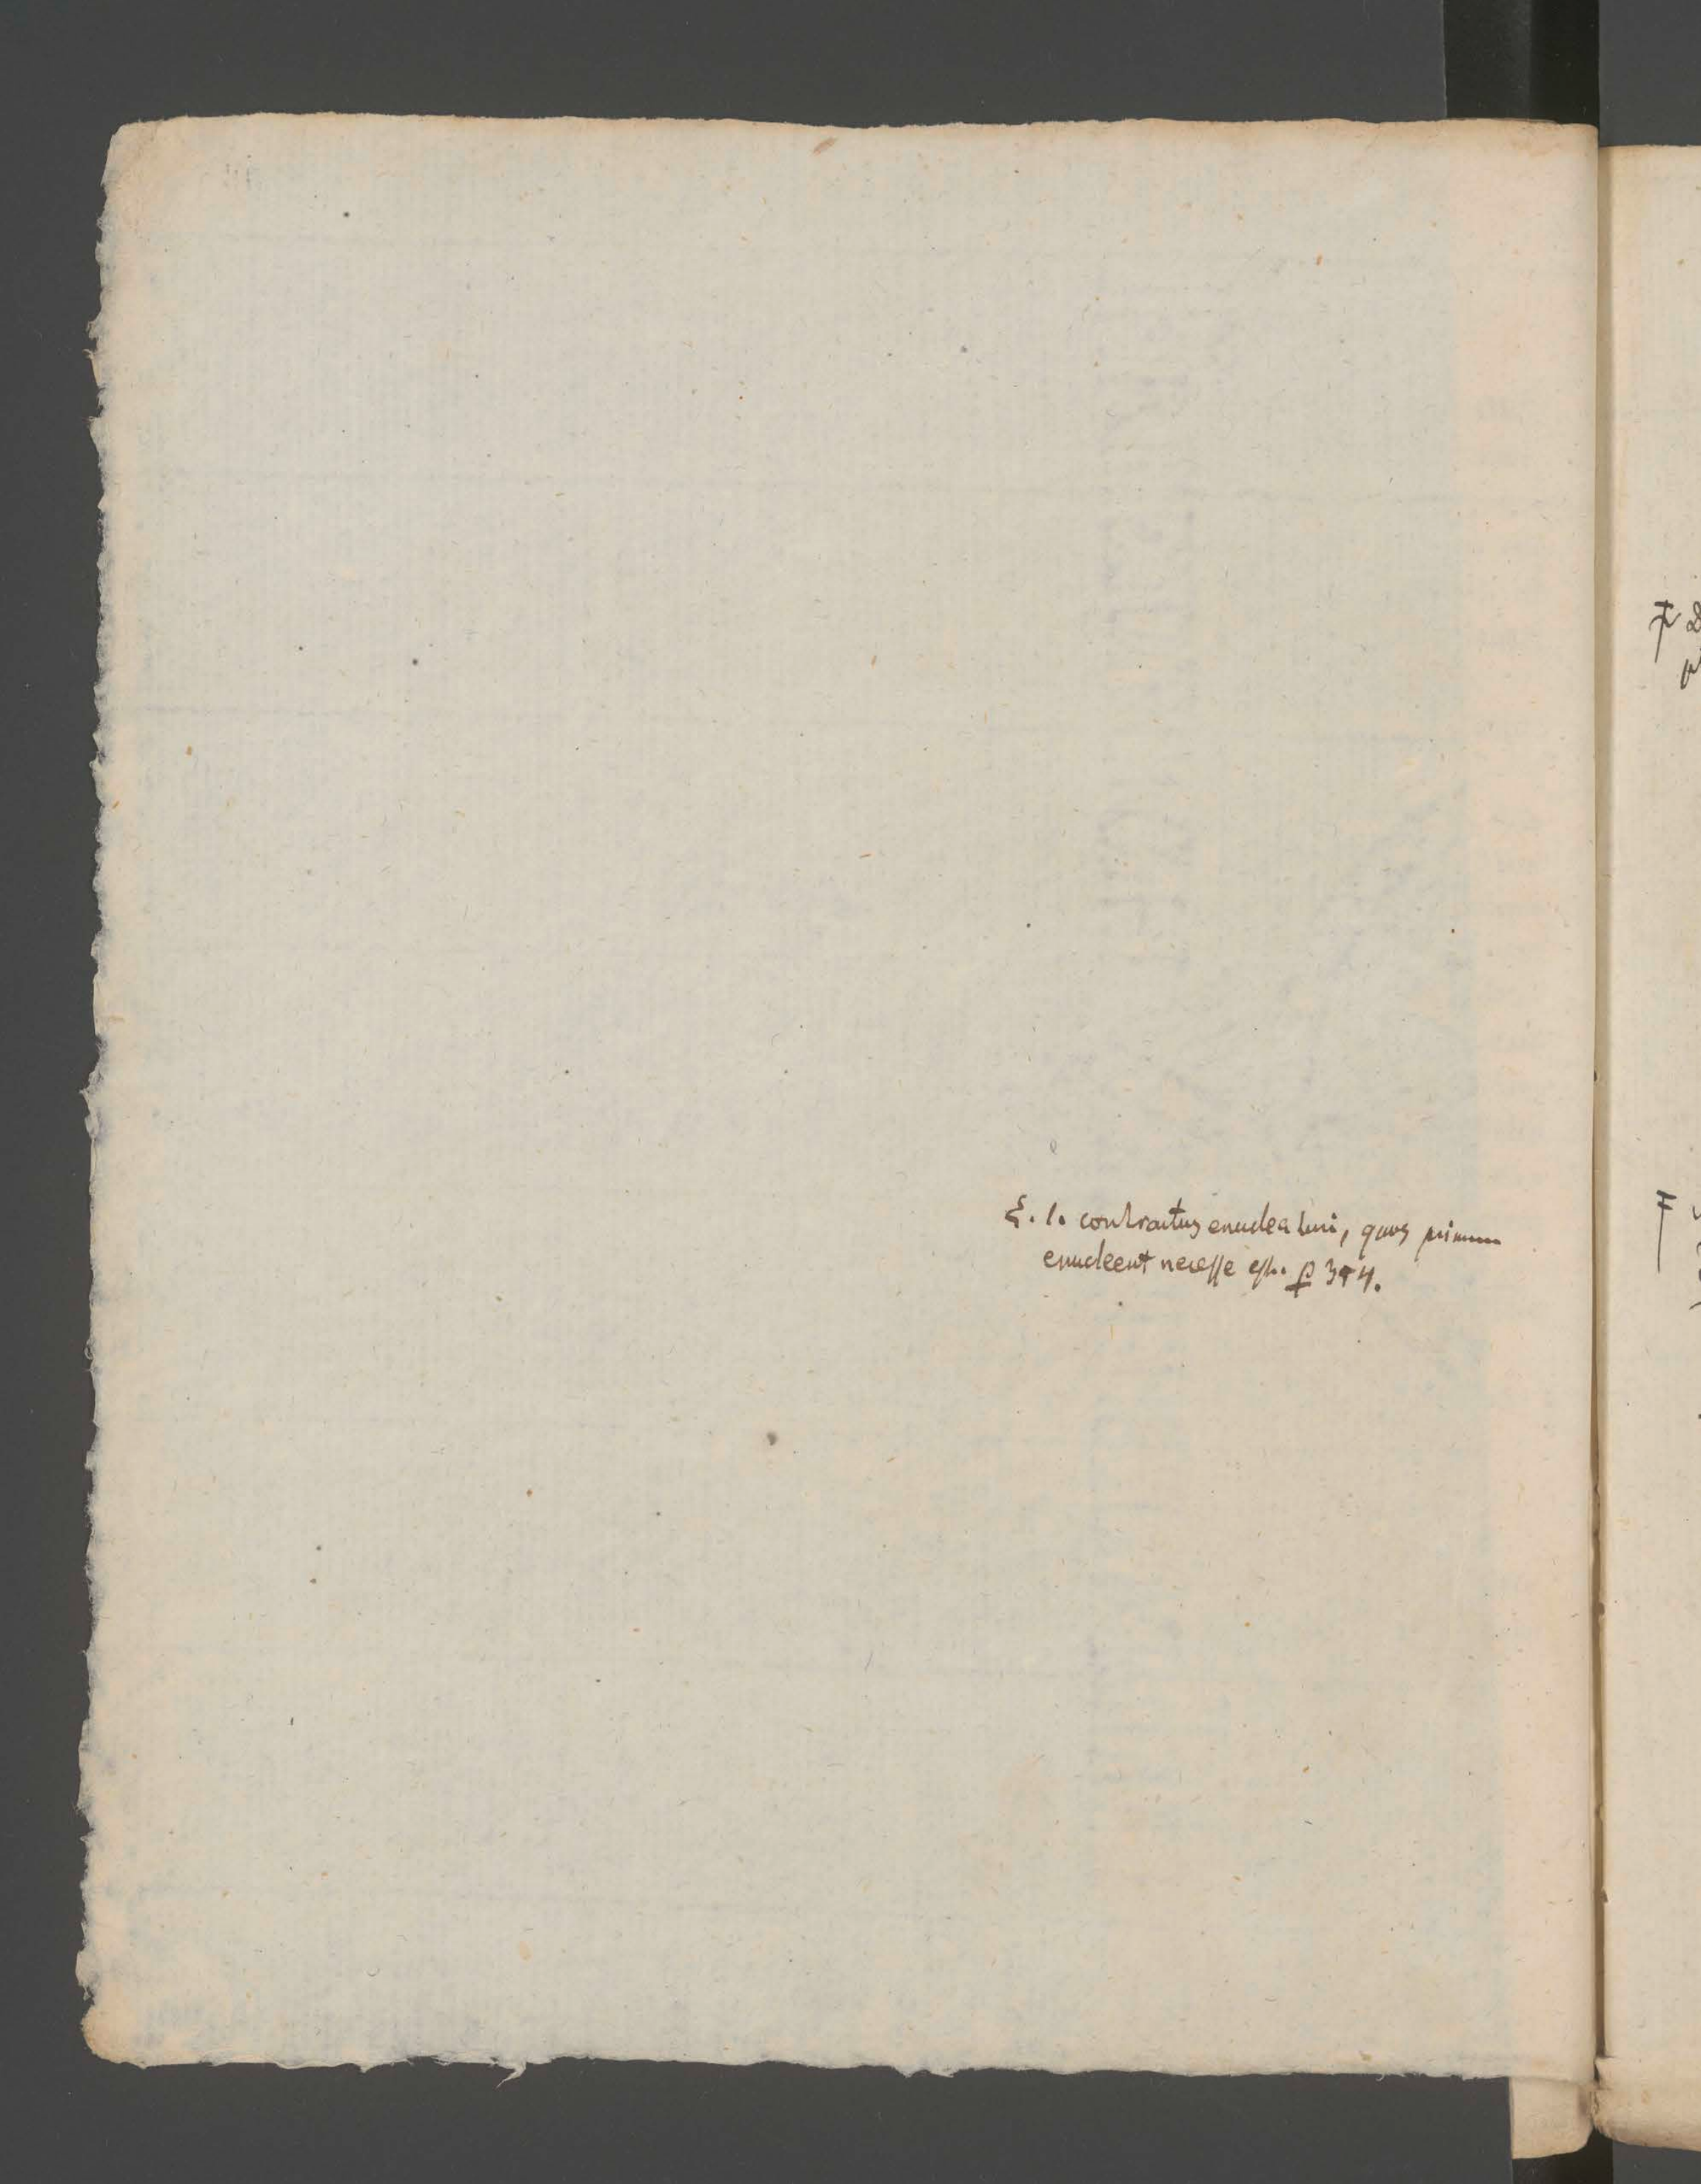 ξ. 1. contractus enudeaburi, quos primum
enudeent necesse est. p 394.